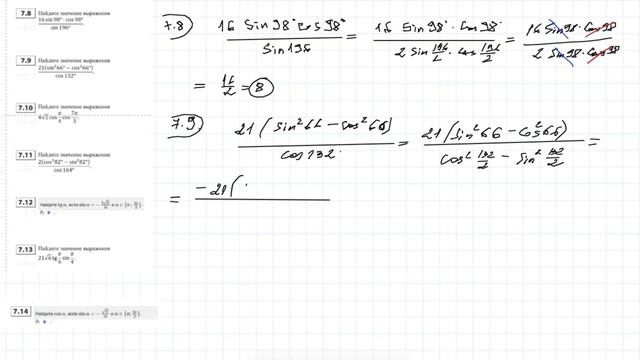 7.8 Найдите значение выражения
16 sin 98° · cos 98°
sin 196°
7.9 Найдите значение выражения
21(sin²66° − cos²66°)
cos 132°
7.10 Найдите значение выражения
4√2 cos π/4 cos 7π/3.
7.11 Найдите значение выражения
2(cos²82° − sin²82°)
cos 164°
7.12 Найдите tg α, если sin α = −
7.13 Найдите значение выражения
21√6 tg π/6 sin π/4.
7.14 Найдите cos α, если sin α = −
7.8 16 Sin 98° cos 98° / Sin 196 = 16 Sin 98° · Cos 98° / 2 Sin 196/2 · Cos 196/2 = 16 Sin 98 · Cos 98 / 2 Sin 98 · Cos 98
= 16/2 = 8
7.9) 21 (Sin² 66 − Cos² 66) / Cos 132 = 21 (Sin² 66 − Cos² 66) / Cos² 132/2 − Sin² 132/2 =
= −21(